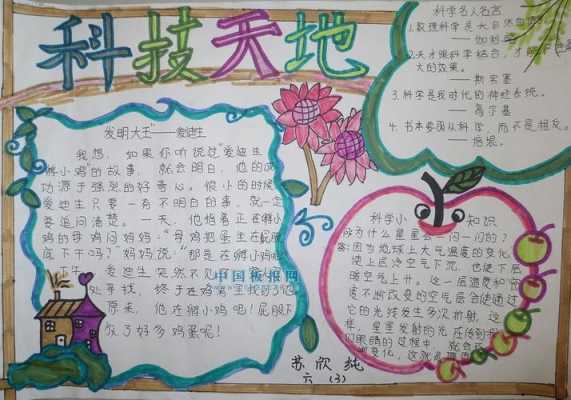 科技天地
发明大王"——爱迪生
我想，如果你听说过"爱迪生
孵小鸡"的故事，就会明白，他的成
功源于强烈的好奇心。很小的时候
爱迪生只要一有不明白的事，就一定
要追问清楚。一天，他指着正在孵小
鸡的母鸡问妈妈："母鸡把蛋坐在屁股
底下干吗？"妈妈说："那是在孵小鸡
爱迪生突然不见
处寻找，终于在鸡窝里找到了他
原来，他在孵小鸡呢！屁股下
放了好多鸡蛋呢！
中国板报网
科学名人名言
1.数理科学是大自
——伽利略
2.天才跟科学结合，才
大的效果。
——斯宾塞
3.科学是我时代的神经系统。
——高尔基
4.书本要跟从科学，而不是相反。
——培根。
科学小知识
问为什么星星会一闪一闪的？
答:因为地球上大气温度的变化
使上层冷空气下沉，也使下层
暖空气上升。这一层温度和密
度不断改变的空气层会使通过
它的光线发生多次折射，这
样，星星发射的光在传到我
们眼睛的过程中，就会
变化，这就
苏欣纯
六（3）